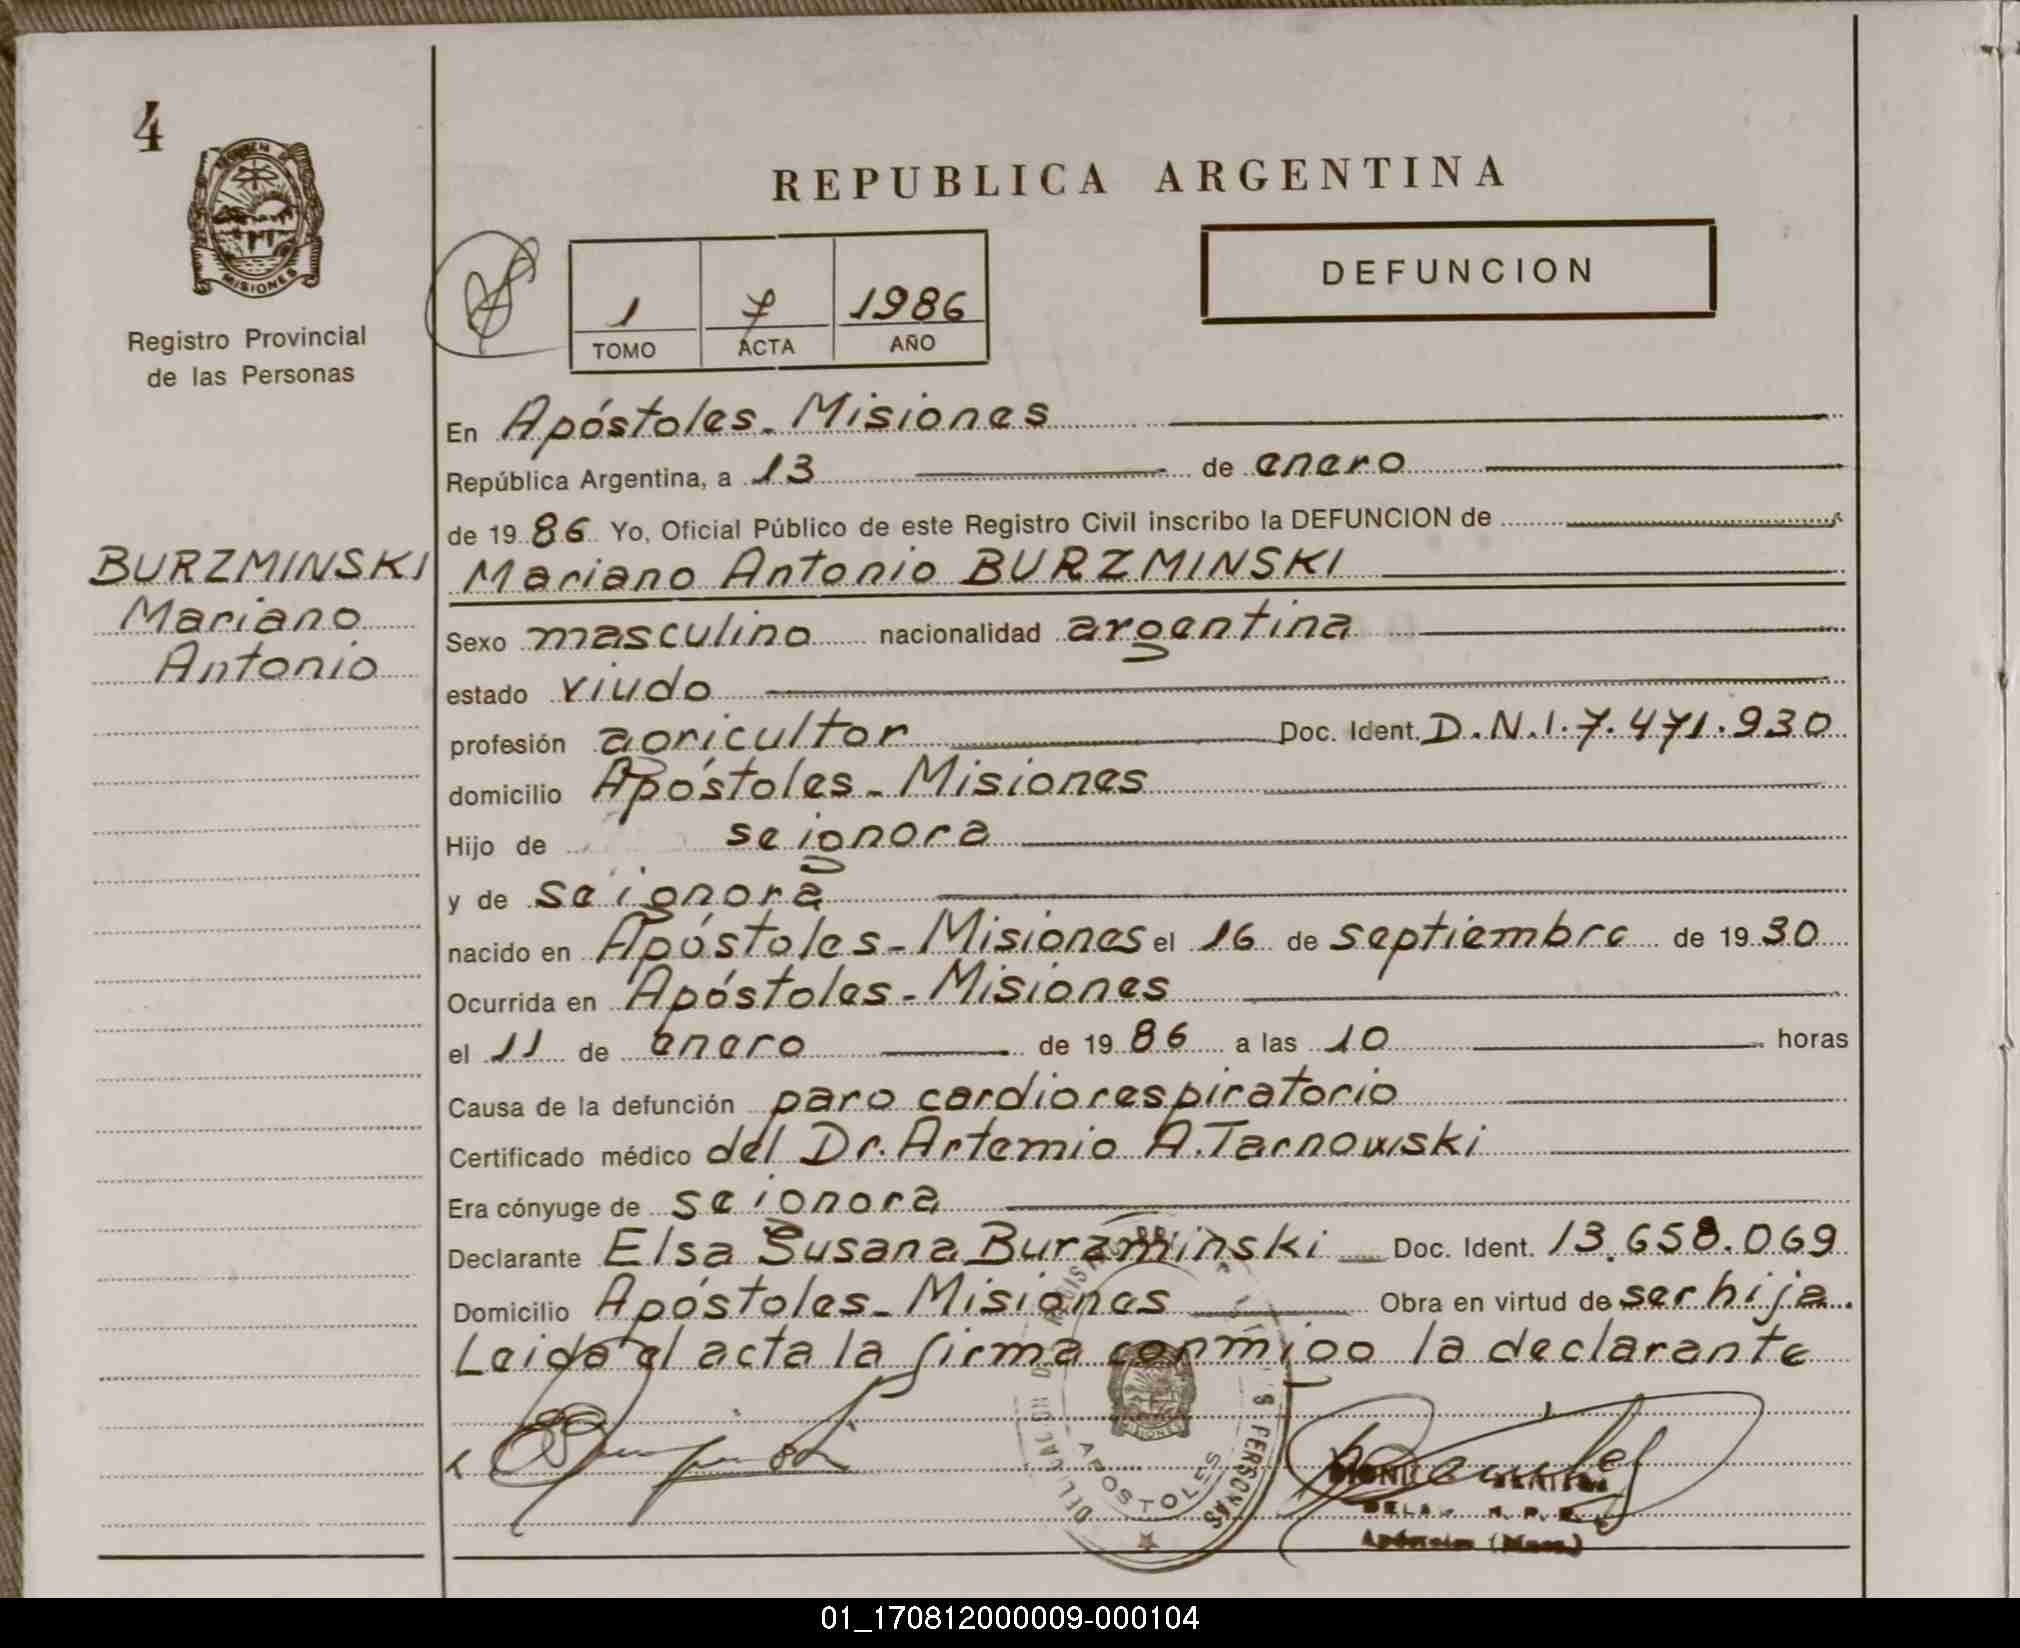 4
MISIONES
Registro Provincial
de las Personas
BURZMINSKI
Mariano
Antonio
REPUBLICA ARGENTINA
DEFUNCION
1 7 1986
TOMO ACTA AÑO
En Apóstoles - Misiones
República Argentina, a 13 de enero
de 1986 Yo, Oficial Público de este Registro Civil inscribo la DEFUNCION de
Mariano Antonio BURZMINSKI
Sexo masculino nacionalidad argentina
estado viudo
profesión agricultor Doc. Ident. D.N.I. 7.471.930
domicilio Apóstoles - Misiones
Hijo de se ignora
y de se ignora
nacido en Apóstoles - Misiones el 16 de septiembre de 1930
Ocurrida en Apóstoles - Misiones
el 11 de enero de 1986 a las 10 horas
Causa de la defunción paro cardiorespiratorio
Certificado médico del Dr. Artemio A. Tarnowski
Era cónyuge de se ignora
Declarante Elsa Susana Burzminski Doc. Ident. 13.658.069
Domicilio Apóstoles - Misiones Obra en virtud de ser hija.
Leida el acta la firma conmigo la declarante
APOSTOLES
PERSONAS
01_170812000009-000104